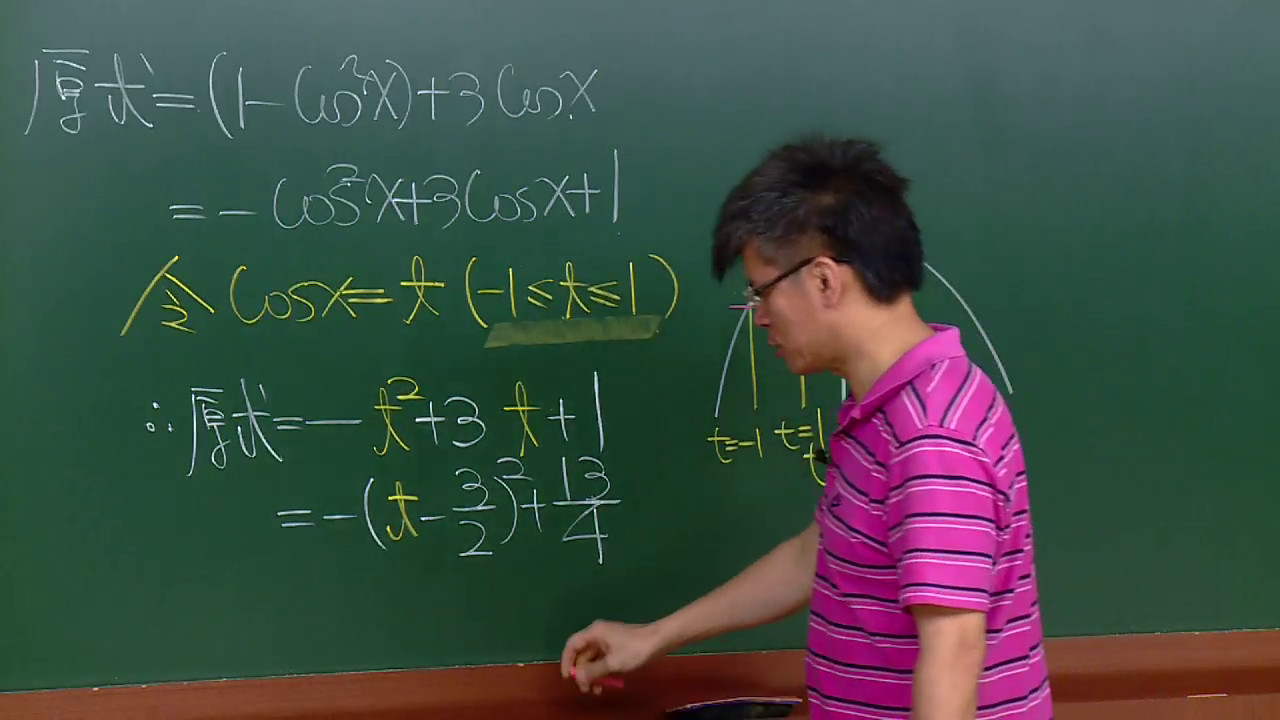 原式=(1-Cos²x)+3Cosx
=-Cos²x+3Cosx+1
令Cosx=t(-1≤t≤1)
∴原式=-t²+3t+1
=-(t-3/2)²+13/4
t=-1 t=1
t